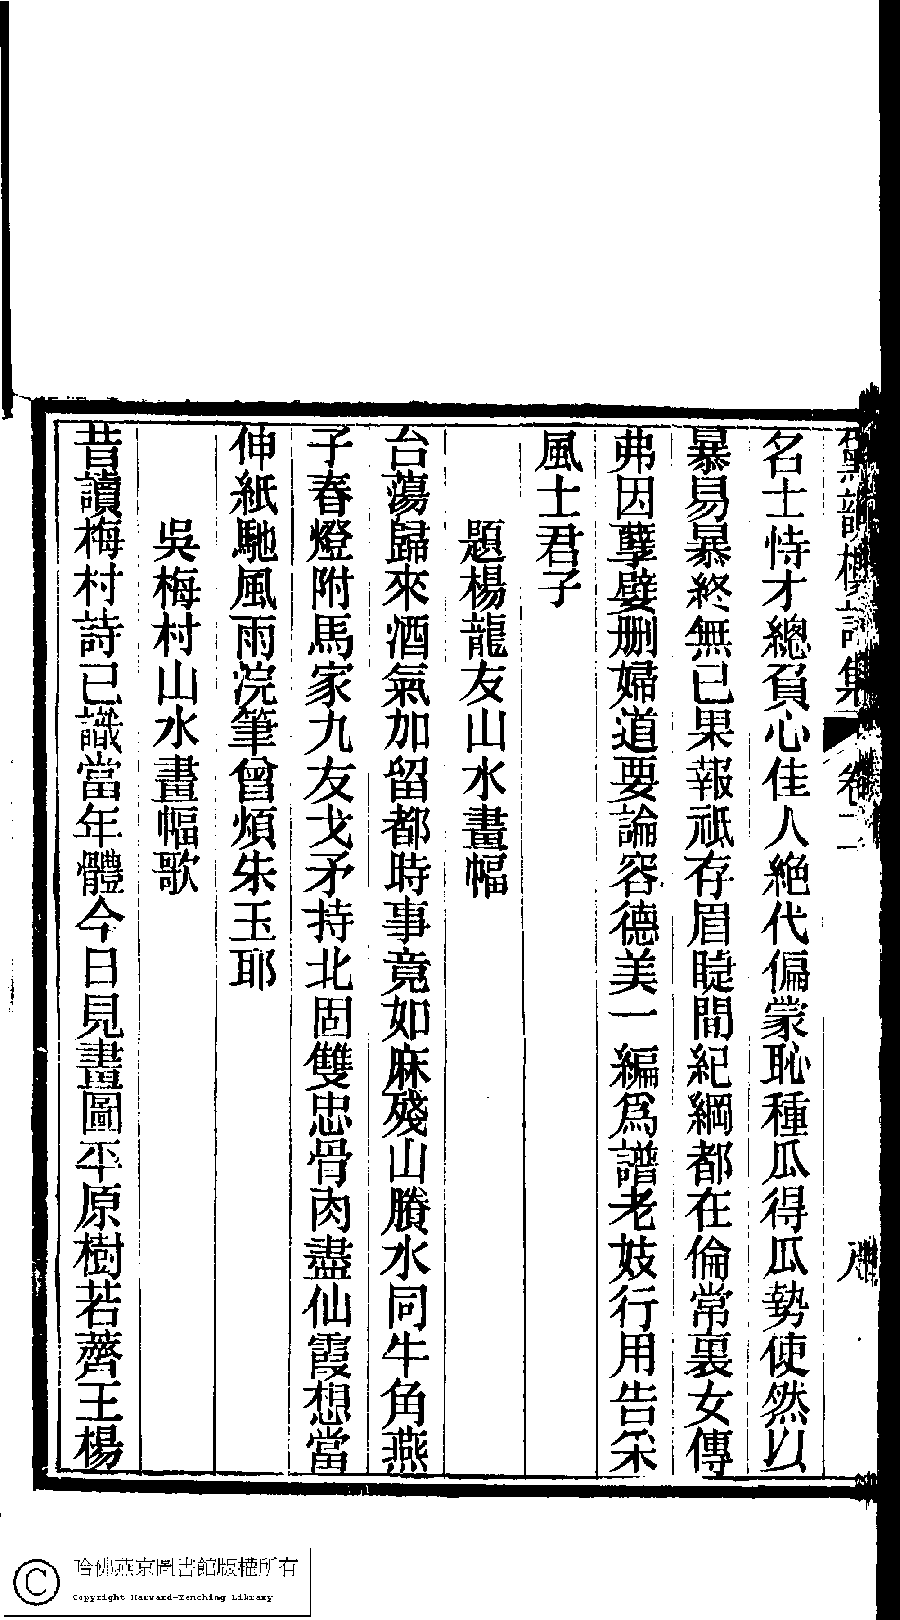 黛韻樓詩集 卷二 八
名士恃才總負心佳人絶代偏蒙恥種瓜得瓜勢使然以
暴易暴終無已果報祗存眉睫間紀綱都在倫常裏女傳
弗因孽嬖删婦道要論容德美一編爲譜老妓行用告采
風士君子
題楊龍友山水畫幅
台蕩歸來酒氣加留都時事竟如麻殘山賸水同牛角燕
子春燈附馬家九友戈矛持北固雙忠骨肉盡仙霞想當
伸紙馳風雨浣筆曾煩朱玉耶
吳梅村山水畫幅歌
昔讀梅村詩已識當年體今日見畫圖平原樹若薺王楊
哈佛燕京圖書館版權所有
Copyright Harvard-Yenching Library